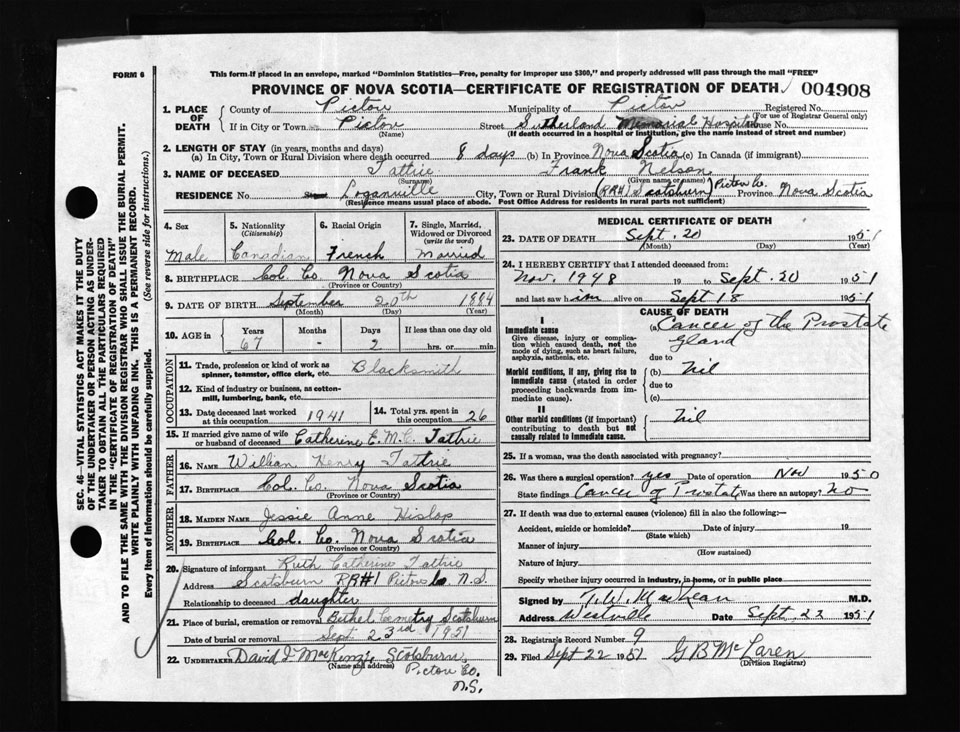 FORM 6
This form if placed in an envelope, marked "Dominion Statistics—Free, penalty for improper use $300," and properly addressed will pass through the mail "FREE"
PROVINCE OF NOVA SCOTIA—CERTIFICATE OF REGISTRATION OF DEATH 004908
1. PLACE OF DEATH County of Pictou Municipality of Pictou Registered No.
(For use of Registrar General only)
If in City or Town Pictou Street Sutherland Memorial Hospital House No.
(Name) (If death occurred in a hospital or institution, give the name instead of street and number)
2. LENGTH OF STAY (in years, months and days)
(a) In City, Town or Rural Division where death occurred 8 days (b) In Province Nova Scotia (c) In Canada (if immigrant)
3. NAME OF DECEASED Tattrie Frank Nelson
(Surname) (Given name or names)
RESIDENCE No Street Loganville City, Town or Rural Division (RR#1 Scotsburn) Pictou Co. Province Nova Scotia
(Residence means usual place of abode. Post Office Address for residents in rural parts not sufficient)
4. Sex 5. Nationality (Citizenship) 6. Racial Origin 7. Single, Married, Widowed or Divorced (write the word)
Male Canadian French Married
8. BIRTHPLACE Col. Co. Nova Scotia
(Province or Country)
9. DATE OF BIRTH September 20th 1884
(Month) (Day) (Year)
10. AGE in Years Months Days If less than one day old
67 - 2 hrs. or min.
OCCUPATION
11. Trade, profession or kind of work as spinner, teamster, office clerk, etc. Blacksmith
12. Kind of industry or business, as cotton-mill, lumbering, bank, etc.
13. Date deceased last worked at this occupation 1941 14. Total yrs. spent in this occupation 26
15. If married give name of wife or husband of deceased Catherine E. M. C. Tattrie
FATHER
16. NAME William Henry Tattrie
17. BIRTHPLACE Col. Co. Nova Scotia
(Province or Country)
MOTHER
18. MAIDEN NAME Jessie Anne Hislop
19. BIRTHPLACE Col. Co. Nova Scotia
(Province or Country)
20. Signature of informant Ruth Catherine Tattrie
Address Scotsburn RR#1 Pictou Co. N.S.
Relationship to deceased daughter
21. Place of burial, cremation or removal Bethel Cemetry Scotsburn
Date of burial or removal Sept 23rd 1951
22. UNDERTAKER David J MacKenzie Scotsburn,
(Name and address) Pictou Co.
N.S.
MEDICAL CERTIFICATE OF DEATH
23. DATE OF DEATH Sept. 20 1951
(Month) (Day) (Year)
24. I HEREBY CERTIFY that I attended deceased from:
Nov. 1948 19 to Sept. 20 1951
and last saw him alive on Sept 18 1951
CAUSE OF DEATH
I
Immediate cause (a) Cancer of the Prostate
Give disease, injury or complication which caused death, not the mode of dying, such as heart failure, asphyxia, asthenia, etc. Gland
due to
Morbid conditions, if any, giving rise to immediate cause (stated in order proceeding backwards from immediate cause). (b) Nil
due to
(c)
II
Other morbid conditions (if important) contributing to death but not causally related to immediate cause. Nil
25. If a woman, was the death associated with pregnancy?
26. Was there a surgical operation? yes Date of operation Nov 1950
State findings Cancer of Prostate Was there an autopsy? No
27. If death was due to external causes (violence) fill in also the following:—
Accident, suicide or homicide? Date of injury 19
(State which)
Manner of injury
(How sustained)
Nature of injury
Specify whether injury occurred in industry, in home, or in public place
Signed by T. W. MacLean M.D.
Address Westville Date Sept. 22 1951
28. Registrar's Record Number 9
29. Filed Sept 22 1951 G B McLaren
(Division Registrar)
SEC. 46—VITAL STATISTICS ACT MAKES IT THE DUTY
OF THE UNDERTAKER OR PERSON ACTING AS UNDER-
TAKER TO OBTAIN ALL THE PARTICULARS REQUIRED
IN THE "CERTIFICATE OF REGISTRATION OF DEATH"
AND TO FILE THE SAME WITH THE DIVISION REGISTRAR WHO SHALL ISSUE THE BURIAL PERMIT.
WRITE PLAINLY WITH UNFADING INK. THIS IS A PERMANENT RECORD.
Every item of information should be carefully supplied. (See reverse side for instructions.)